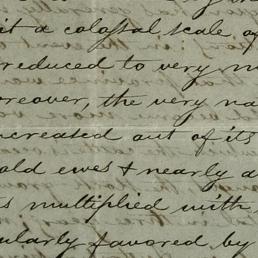 it a colossal scale of
reduced to very m
oreover, the very na
ncreated out of its
old ewes & nearly a
is multiplied with
ularly favored by